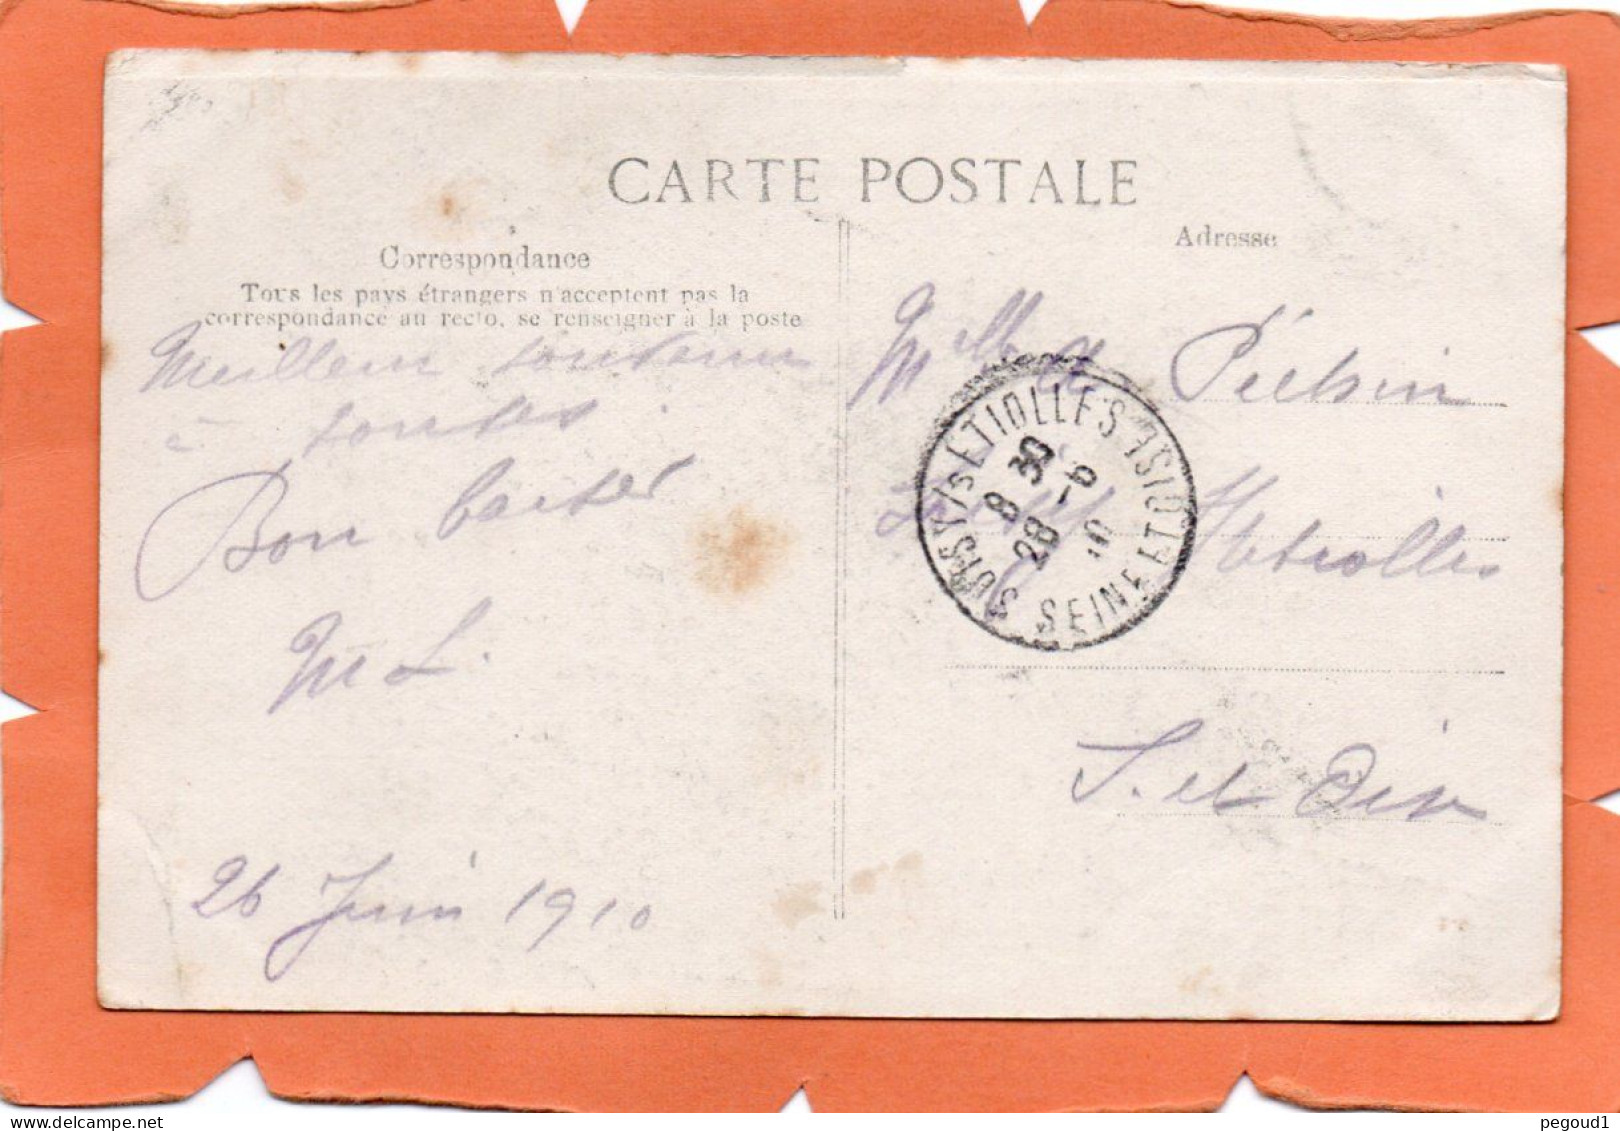 CARTE POSTALE
Correspondance
Tous les pays étrangers n'acceptent pas la
correspondance au recto, se renseigner à la poste
Meilleur souvenir
à toutes.
Bon baiser
M L.
26 Juin 1910
Adresse
Mlle de
Etiolles
S. et Oise
SOISY S/s ETIOLLES
SEINE ET OISE
8 30
28 -6
10
pegoud1